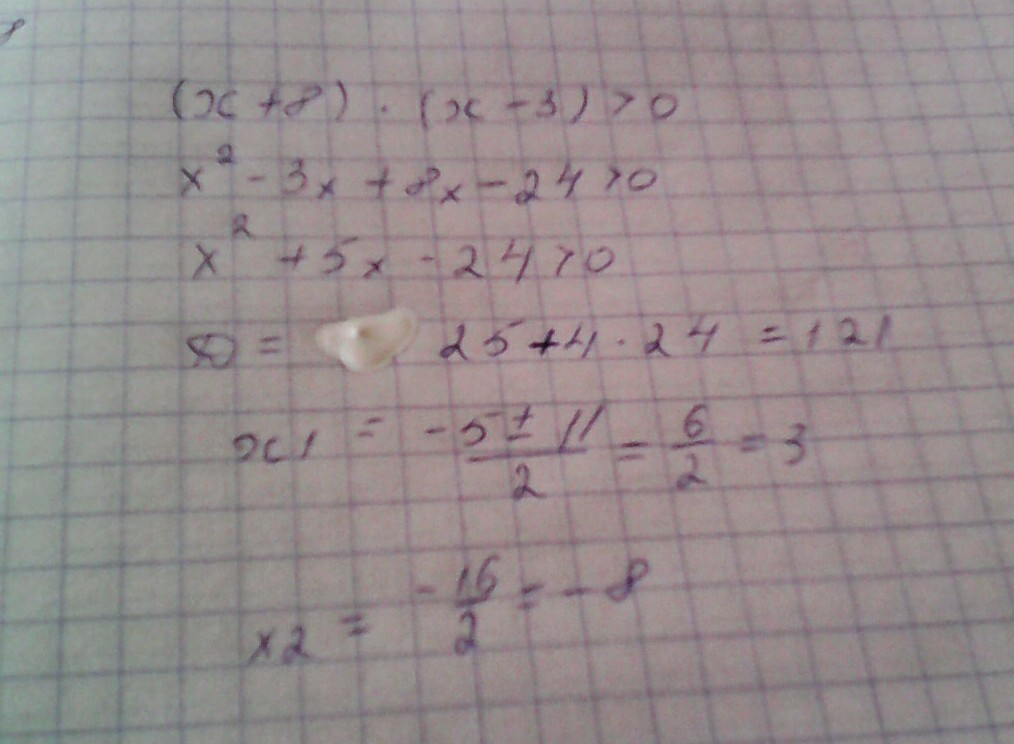 (x + 8) · (x - 3) > 0
x² - 3x + 8x - 24 > 0
x² + 5x - 24 > 0
D = 25 + 4 · 24 = 121
x1 = (-5 ± 11)/2 = 6/2 = 3
x2 = -16/2 = -8